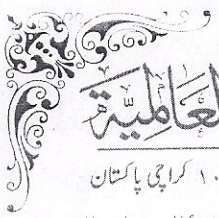 العَالَمِيَّة
۱۰ کراچی پاکستان